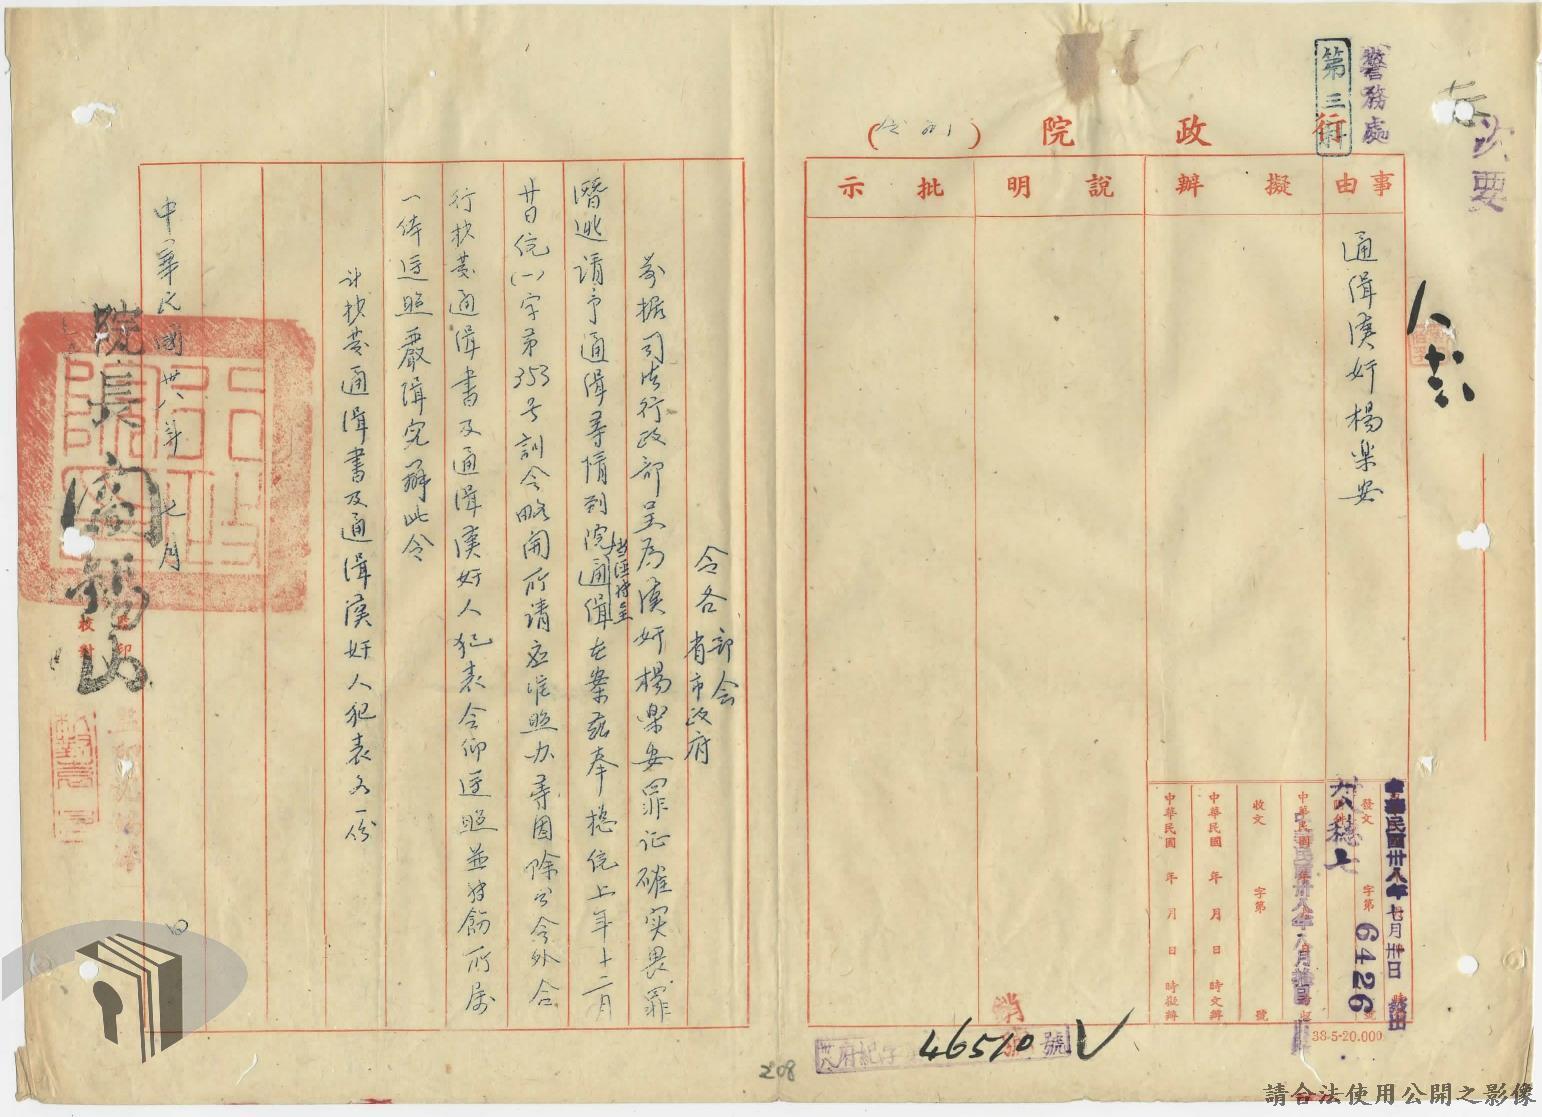 警務處
第三科
次要
行政院（令　稿）
事由
擬辦
說明
批示
通緝漢奸楊樂安
發文
字第
號
中華民國卅八年七月卅日
時發出
卅八穗七
6426
中華民國　年　月　日
中華民國卅八年八月
收文
字第
號
中華民國　年　月　日　時交辦
中華民國　年　月　日　時擬辦
38-5-20.000
府紀字
46510
號
208
令各部会
省市政府
案据司法行政部呈為漢奸楊樂安罪证確实畏罪
潛逃請予通緝等情到院
当经转呈
通緝在案茲奉總統上年十二月
廿日統(一)字第353号訓令略開所請应准照办等因除分令外合
行抄發通緝書及通緝漢奸人犯表令仰遵照並转飭所属
一体遵照嚴緝究辦此令
计抄發通緝書及通緝漢奸人犯表各一份
中華民國卅八年七月　日
院長閻錫山
監印
校對
請合法使用公開之影像